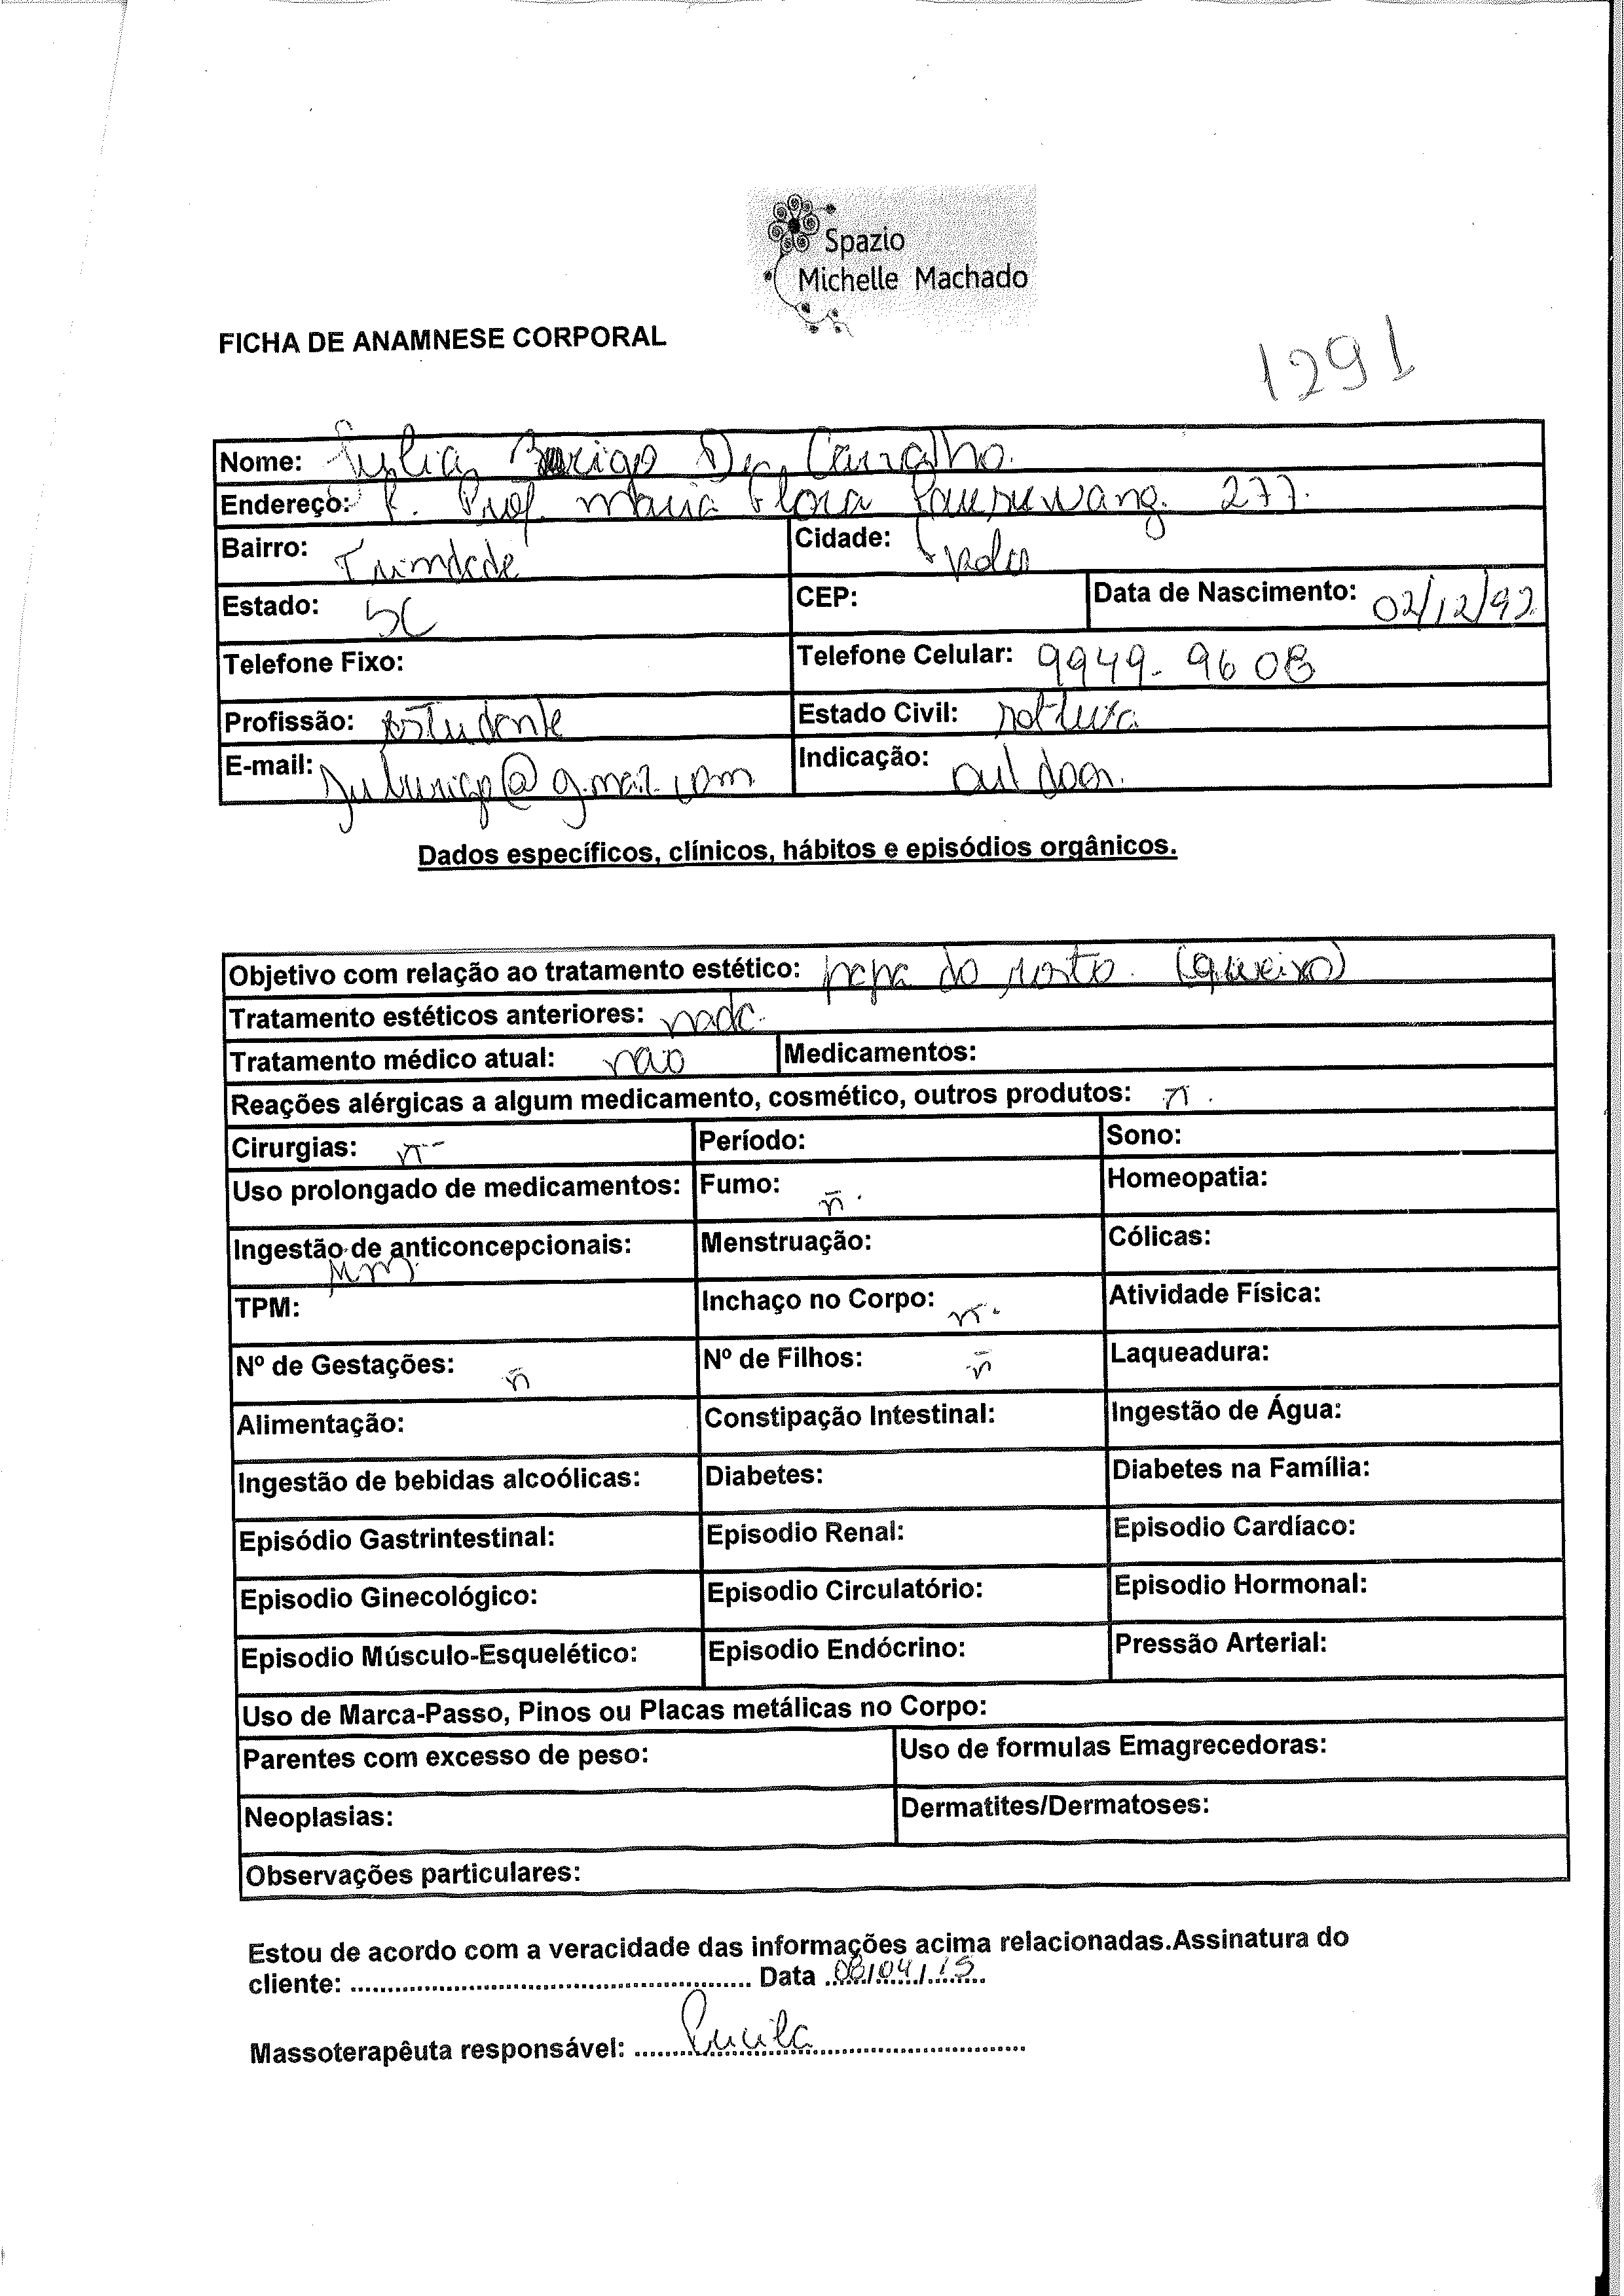 Spazio
Michelle Machado
FICHA DE ANAMNESE CORPORAL
1291
Nome: Julia Burigo De Carvalho.
Endereço: R. Prof. Maria Flora 277.
Bairro: Trindade Cidade: Fpolis
Estado: SC CEP: Data de Nascimento: 02/12/92
Telefone Fixo: Telefone Celular: 9949-9608
Profissão: estudante Estado Civil: solteira
E-mail: juburigo@gmail.com Indicação: out door.
Dados específicos, clínicos, hábitos e episódios orgânicos.
Objetivo com relação ao tratamento estético: papa do rosto. (queixo)
Tratamento estéticos anteriores: nada.
Tratamento médico atual: não Medicamentos:
Reações alérgicas a algum medicamento, cosmético, outros produtos: ñ.
Cirurgias: ñ Período: Sono:
Uso prolongado de medicamentos: Fumo: ñ. Homeopatia:
Ingestão de anticoncepcionais: Menstruação: Cólicas:
TPM: Inchaço no Corpo: ñ. Atividade Física:
Nº de Gestações: ñ Nº de Filhos: ñ Laqueadura:
Alimentação: Constipação Intestinal: Ingestão de Água:
Ingestão de bebidas alcoólicas: Diabetes: Diabetes na Família:
Episódio Gastrintestinal: Episodio Renal: Episodio Cardíaco:
Episodio Ginecológico: Episodio Circulatório: Episodio Hormonal:
Episodio Músculo-Esquelético: Episodio Endócrino: Pressão Arterial:
Uso de Marca-Passo, Pinos ou Placas metálicas no Corpo:
Parentes com excesso de peso: Uso de formulas Emagrecedoras:
Neoplasias: Dermatites/Dermatoses:
Observações particulares:
Estou de acordo com a veracidade das informações acima relacionadas.Assinatura do
cliente: ........ Data 08/04/15
Massoterapêuta responsável: ........